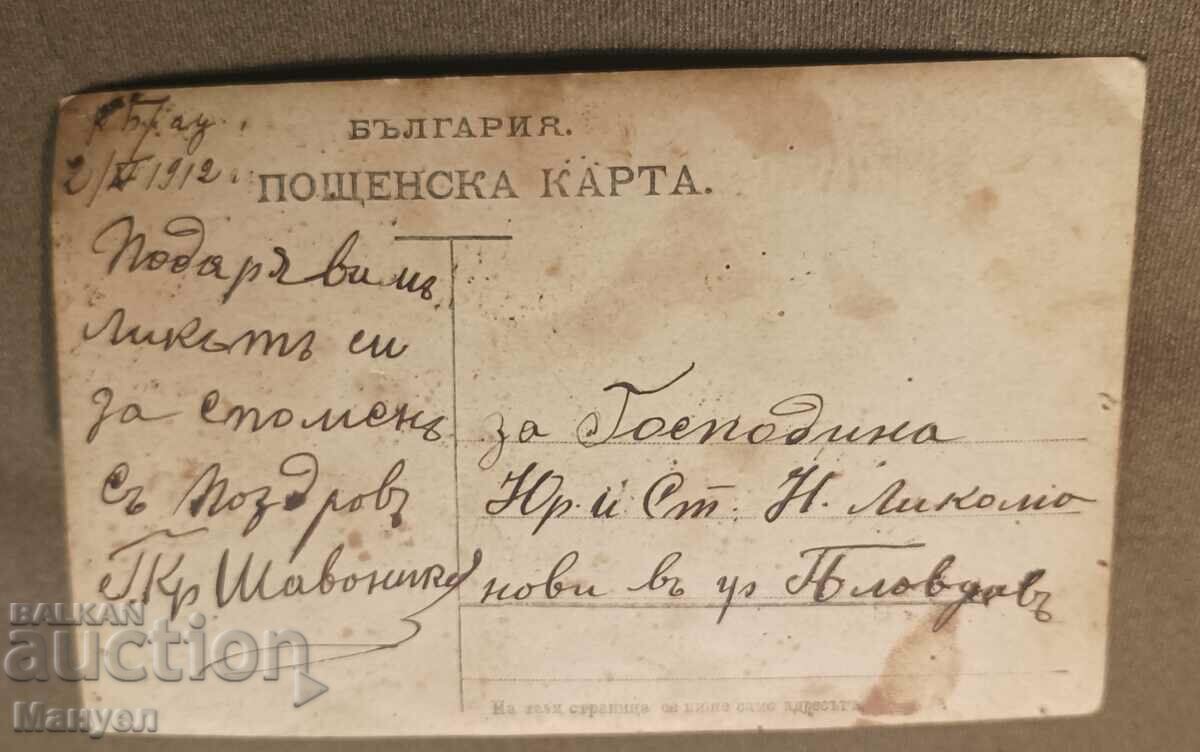 2/XI 1912.
БЪЛГАРИЯ.
ПОЩЕНСКА КАРТА.
Подаря вимъ
Ликътъ си
за споменъ
съ поздровъ
Кр Шавоник
за Господина
Юр. и Ст. Н. Ликома
нови въ гр Пловдовъ
На тази страница се пише само адресътъ
BALKAN
auction
Мануел